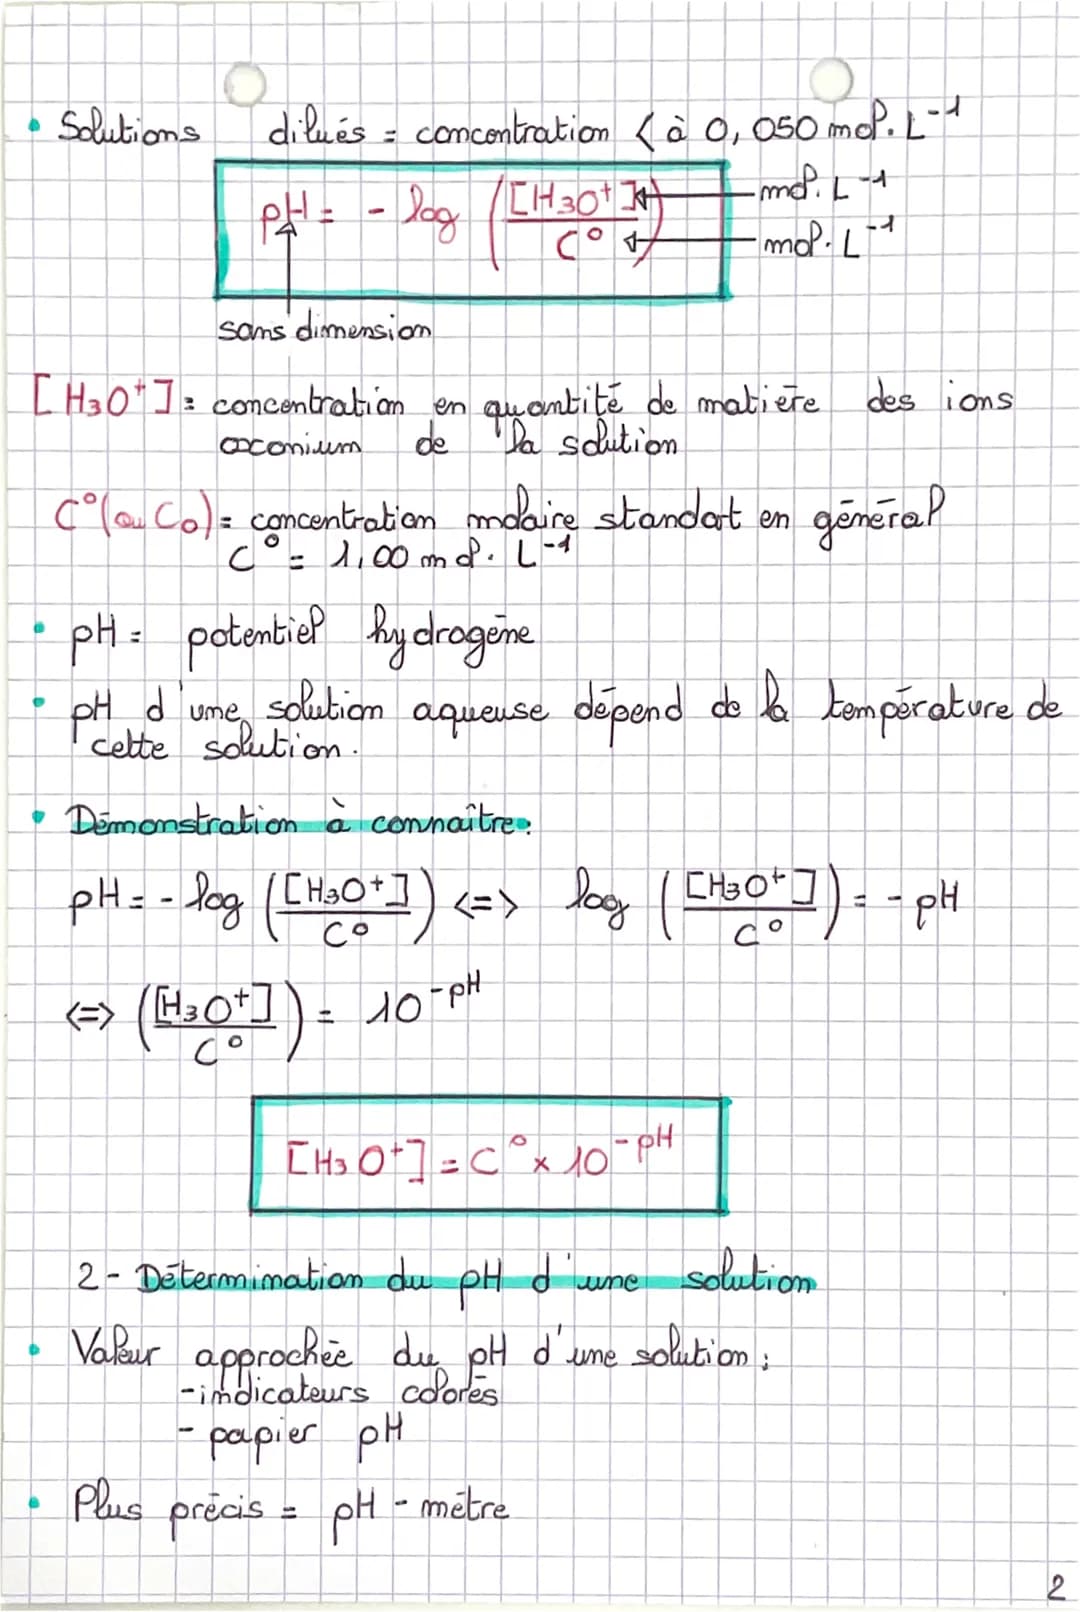 • Solutions dilués = concentration < à 0,050 mol.L⁻¹
pH = - log ([H₃O⁺]/C°) mol.L⁻¹
mol.L⁻¹
sans dimension
[H₃O⁺] : concentration en quantité de matière des ions
oxonium de la solution
C° (ou C₀) = concentration molaire standart en général
C° = 1,00 mol.L⁻¹
• pH = potentiel hydrogène
• pH d'une solution aqueuse dépend de la température de
cette solution.
• Démonstration à connaître :
pH = - log ([H₃O⁺]/C°) <=> log ([H₃O⁺]/C°) = - pH
<=> ([H₃O⁺]/C°) = 10⁻ᵖᴴ
[H₃O⁺] = C° × 10⁻ᵖᴴ
2 - Détermination du pH d'une solution
• Valeur approchée du pH d'une solution :
- indicateurs colorés
- papier pH
• Plus précis = pH - mètre
2